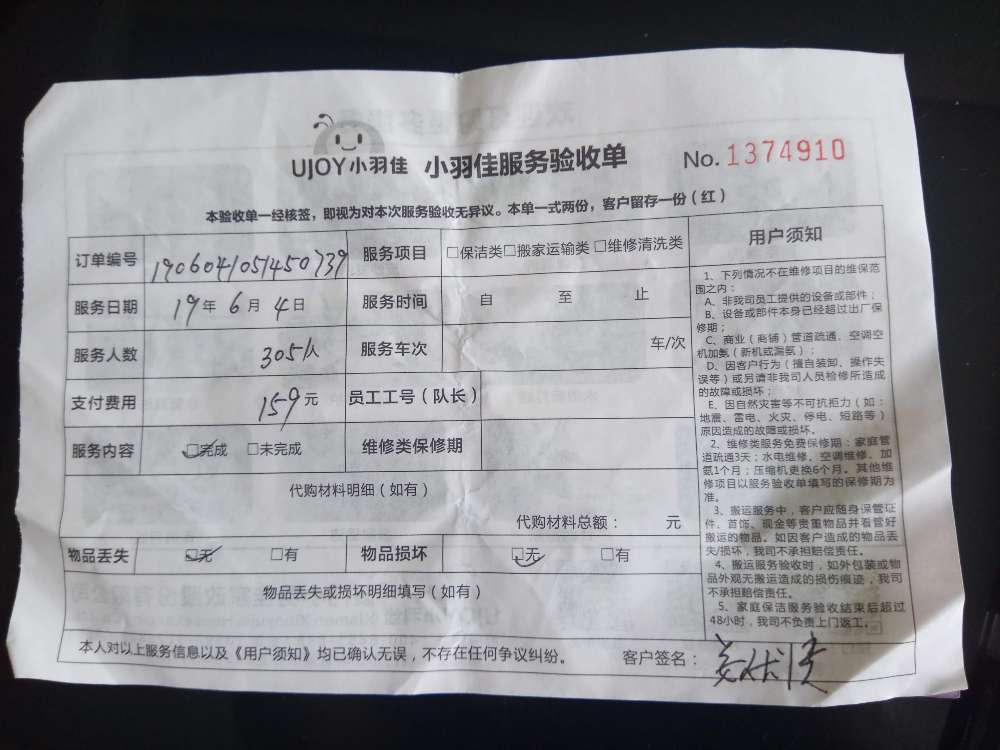 UJOY小羽佳 小羽佳服务验收单 No. 1374910
本验收单一经核签，即视为对本次服务验收无异议。本单一式两份，客户留存一份（红）
订单编号 1906041051450739 服务项目 □保洁类□搬家运输类□维修清洗类
服务日期 19年 6月 4日 服务时间 自 至 止
服务人数 服务车次 车/次
支付费用 159元 员工工号（队长）
服务内容 □完成 □未完成 维修类保修期
代购材料明细（如有）
代购材料总额： 元
物品丢失 □无 □有 物品损坏 □无 □有
物品丢失或损坏明细填写（如有）
用户须知
1、下列情况不在维修项目的维保范
围之内：
A、非我司员工提供的设备或部件；
B、设备或部件本身已经超过出厂保
修期；
C、商业（商铺）管道疏通、空调空
机加氨（新机或漏氨）；
D、因客户行为（擅自装卸、操作失
误等）或另请非我司人员检修所造成
的故障或损坏；
E、因自然灾害等不可抗拒力（如：
地震、雷电、火灾、停电、短路等）
原因造成的故障或损坏。
2、维修类服务免费保修期：家庭管
道疏通3天；水电维修、空调维修、加
氨1个月；压缩机更换6个月。其他维
修项目以服务验收单填写的保修期为
准。
3、搬运服务中，客户应随身保管证
件、首饰、现金等贵重物品并看管好
搬运的物品。如因客户造成的物品丢
失/损坏，我司不承担赔偿责任。
4、搬运服务验收时，如外包装或物
品外观无搬运造成的损伤痕迹，我司
不承担赔偿责任。
5、家庭保洁服务验收结束后超过
48小时，我司不负责上门返工。
本人对以上服务信息以及《用户须知》均已确认无误，不存在任何争议纠纷。 客户签名：